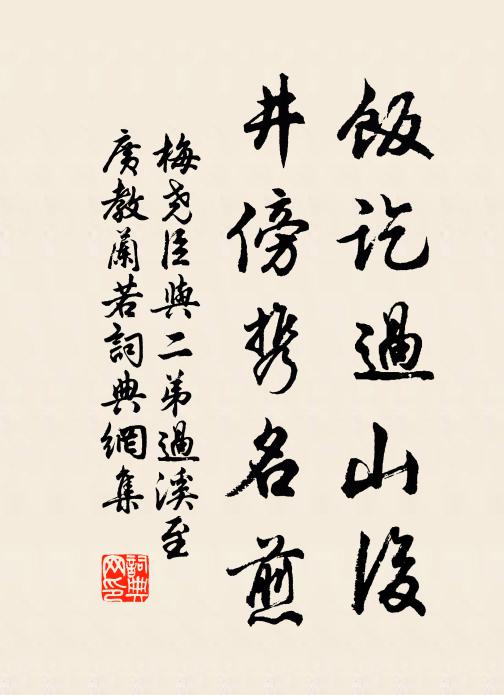 飯訖過山後
井傍携名煎
梅堯臣與二弟過溪至
廣教蘭若詞典網集
詞典网印